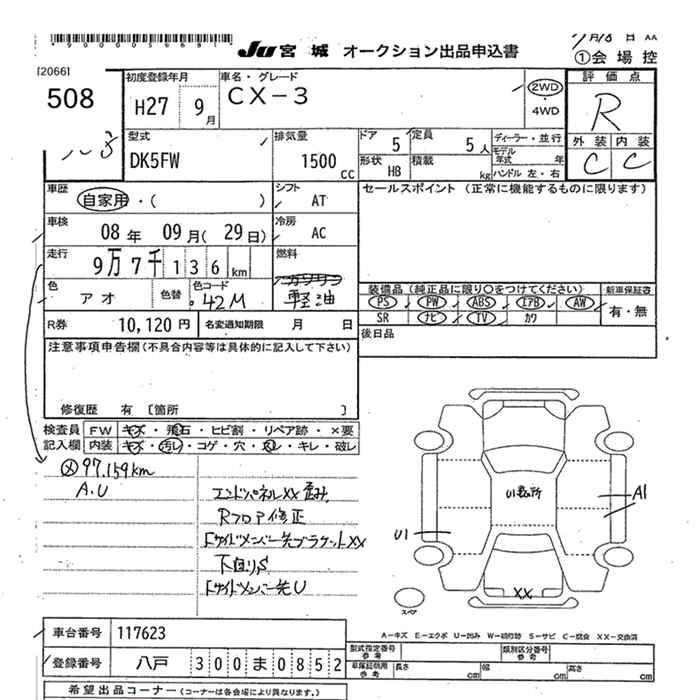 JU 宮城 オークション出品申込書
①会場控
[2066]
508
初度登録年月
H27 9月
車名・グレード
CX-3
2WD
4WD
評価点
R
外装 内装
C C
型式
DK5FW
排気量
1500 CC
ドア 5
定員 5人
形状 HB
積載 kg
ディーラー・並行
モデル年式 年
ハンドル 左・右
車歴
自家用・( )
シフト
AT
セールスポイント (正常に機能するものに限ります)
車検
08年 09月(29日)
冷房
AC
走行
9万7千136km
燃料
ガソリン
軽油
色
アオ
色替
色コード
42M
装備品 (純正品に限り○をつけてください)
PS PW ABS エアB AW
SR ナビ TV カワ
新車保証書
有・無
R券 10,120円
名変通知期限 月 日
後日品
注意事項申告欄(不具合内容等は具体的に記入して下さい)
修復歴 有 [箇所 ]
検査員記入欄
FW キズ・飛石・ヒビ割・リペア跡・×要
内装 キズ・汚レ・コゲ・穴・スレ・キレ・破レ
97,159km
A.U
エンドパネルXX歪み
Rフロア修正
下サイドメンバー先ブラケットXX
下廻りS
下サイドメンバー先U
U1数ヶ所
A1
U1
XX
スペア
A-キズ E-エクボ U-凹み W-補修跡 S-サビ C-腐食 XX-交換済
車台番号 117623
登録番号 八戸 300ま0852
型式指定番号 参考
類別区分番号 参考
車庫証明用 参考
長さ cm 幅 cm 高さ cm
希望出品コーナー (コーナーは各会場により異なります。)